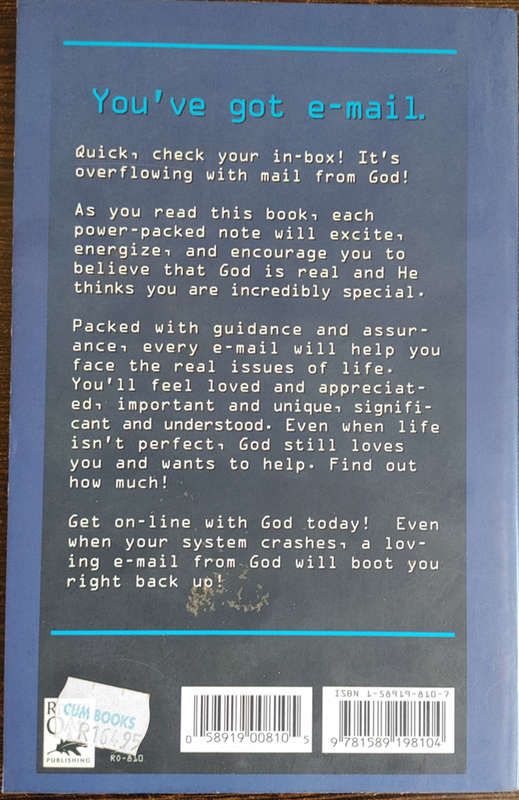 You've got e-mail.
Quick, check your in-box! It's
overflowing with mail from God!
As you read this book, each
power-packed note will excite,
energize, and encourage you to
believe that God is real and He
thinks you are incredibly special.
Packed with guidance and assur-
ance, every e-mail will help you
face the real issues of life.
You'll feel loved and appreciat-
ed, important and unique, signifi-
cant and understood. Even when life
isn't perfect, God still loves
you and wants to help. Find out
how much!
Get on-line with God today! Even
when your system crashes, a lov-
ing e-mail from God will boot you
right back up!
CUM BOOKS
R164.95
PUBLISHING
RO-810
0 58919 00810 5
ISBN 1-58919-810-7
9 781589 198104